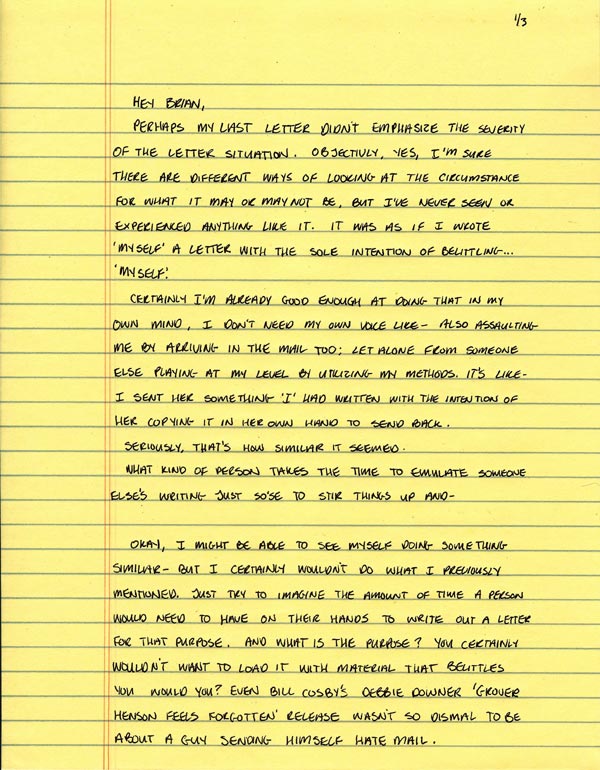 1/3
HEY BRIAN,
PERHAPS MY LAST LETTER DIDN'T EMPHASIZE THE SEVERITY
OF THE LETTER SITUATION. OBJECTIVLY, YES, I'M SURE
THERE ARE DIFFERENT WAYS OF LOOKING AT THE CIRCUMSTANCE
FOR WHAT IT MAY OR MAY NOT BE, BUT I'VE NEVER SEEN OR
EXPERIENCED ANYTHING LIKE IT. IT WAS AS IF I WROTE
'MYSELF' A LETTER WITH THE SOLE INTENTION OF BELITTLING...
'MYSELF.'
CERTAINLY I'M ALREADY GOOD ENOUGH AT DOING THAT IN MY
OWN MIND, I DON'T NEED MY OWN VOICE LIKE- ALSO ASSAULTING
ME BY ARRIVING IN THE MAIL TOO; LET ALONE FROM SOMEONE
ELSE PLAYING AT MY LEVEL BY UTILIZING MY METHODS. IT'S LIKE-
I SENT HER SOMETHING 'I' HAD WRITTEN WITH THE INTENTION OF
HER COPYING IT IN HER OWN HAND TO SEND BACK.
SERIOUSLY, THAT'S HOW SIMILAR IT SEEMED.
WHAT KIND OF PERSON TAKES THE TIME TO EMULATE SOMEONE
ELSE'S WRITING JUST SO'SE TO STIR THINGS UP AND-
OKAY, I MIGHT BE ABLE TO SEE MYSELF DOING SOMETHING
SIMILIAR- BUT I CERTAINLY WOULDN'T DO WHAT I PREVIOUSLY
MENTIONED. JUST TRY TO IMAGINE THE AMOUNT OF TIME A PERSON
WOULD NEED TO HAVE ON THEIR HANDS TO WRITE OUT A LETTER
FOR THAT PURPOSE. AND WHAT IS THE PURPOSE? YOU CERTAINLY
WOULDN'T WANT TO LOAD IT WITH MATERIAL THAT BELITTLES
YOU WOULD YOU? EVEN BILL COSBY'S DEBBIE DOWNER 'GROVER
HENSON FEELS FORGOTTEN' RELEASE WASN'T SO DISMAL TO BE
ABOUT A GUY SENDING HIMSELF HATE MAIL.